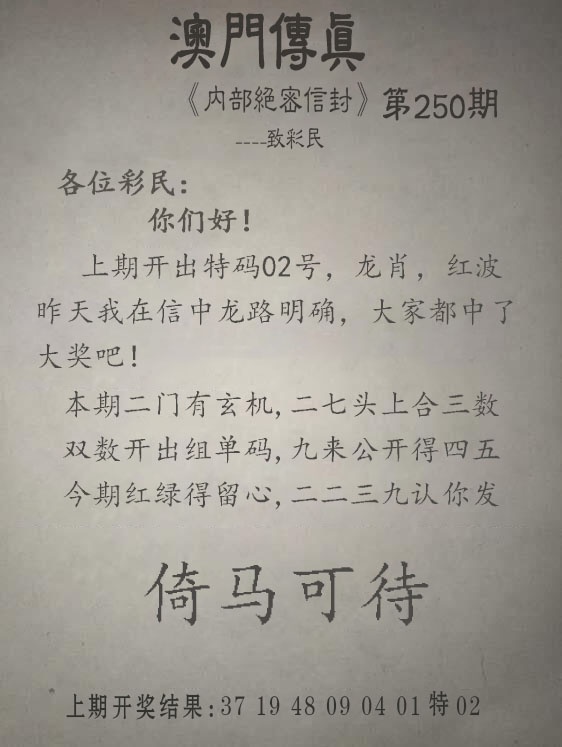 澳門傳眞
《内部絕密信封》第250期
----致彩民
各位彩民：
你们好！
上期开出特码02号，龙肖，红波
昨天我在信中龙路明确，大家都中了
大奖吧！
本期二门有玄机,二七头上合三数
双数开出组单码,九来公开得四五
今期红绿得留心,二二三九认你发
倚马可待
上期开奖结果:37 19 48 09 04 01特02